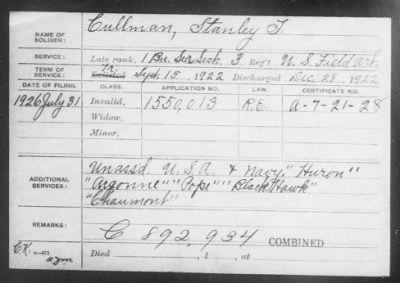 NAME OF SOLDIER: Cullman, Stanley T.
SERVICE: Late rank, 1 Bn. Ser. Sect. 3 Reg't U. S. Field Art.
TERM OF SERVICE: Enlisted Sept. 15, 1922 Discharged Dec. 28, 1922
DATE OF FILING. CLASS. APPLICATION NO. LAW. CERTIFICATE NO.
1926 July 31 Invalid, 1550,013 R.E. A-7-21-28
Widow,
Minor,
ADDITIONAL SERVICES: Unass'd U.S.A. & Navy "Huron"
"Argonne" "Pope" "Black Hawk"
"Chaumont"
REMARKS: C 892,934 COMBINED
Died , 1 , at